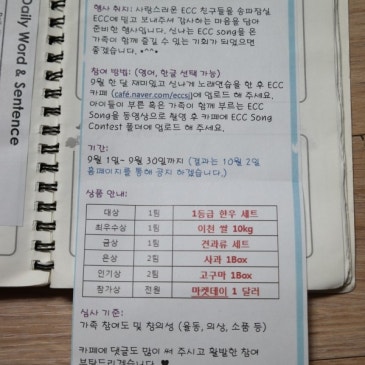 Daily Word & Sentence
행사 취지: 사랑스러운 ECC 친구들을 송파잠실
ECC에 믿고 보내주셔 감사하는 마음을 담아
준비한 행사입니다. 신나는 ECC song을 온
가족이 함께 즐길 수 있는 기회가 되었으면
좋겠습니다. *^^*
참여 방법: (영어, 한글 선택 가능)
9월 한 달 재미있고 신나게 노래연습을 한 후 ECC
카페 (cafe.naver.com/eccsj)에 업로드 해 주세요.
아이들이 부른 혹은 가족이 함께 부르는 ECC
Song을 동영상으로 촬영 후 카페에 ECC Song
Contest 폴더에 업로드 해 주세요.
기간:
9월 1일- 9월 30일까지 (결과는 10월 2일
홈페이지를 통해 공지 하겠습니다.)
상품 안내:
대상 1팀 1등급 한우 세트
최우수상 1팀 이천 쌀 10kg
금상 1팀 견과류 세트
은상 2팀 사과 1Box
인기상 2팀 고구마 1Box
참가상 전원 마켓데이 1 달러
심사 기준:
가족 참여도 및 창의성 (율동, 의상, 소품 등)
카페에 댓글도 많이 써 주시고 활발한 참여
부탁드리겠습니다. ♥